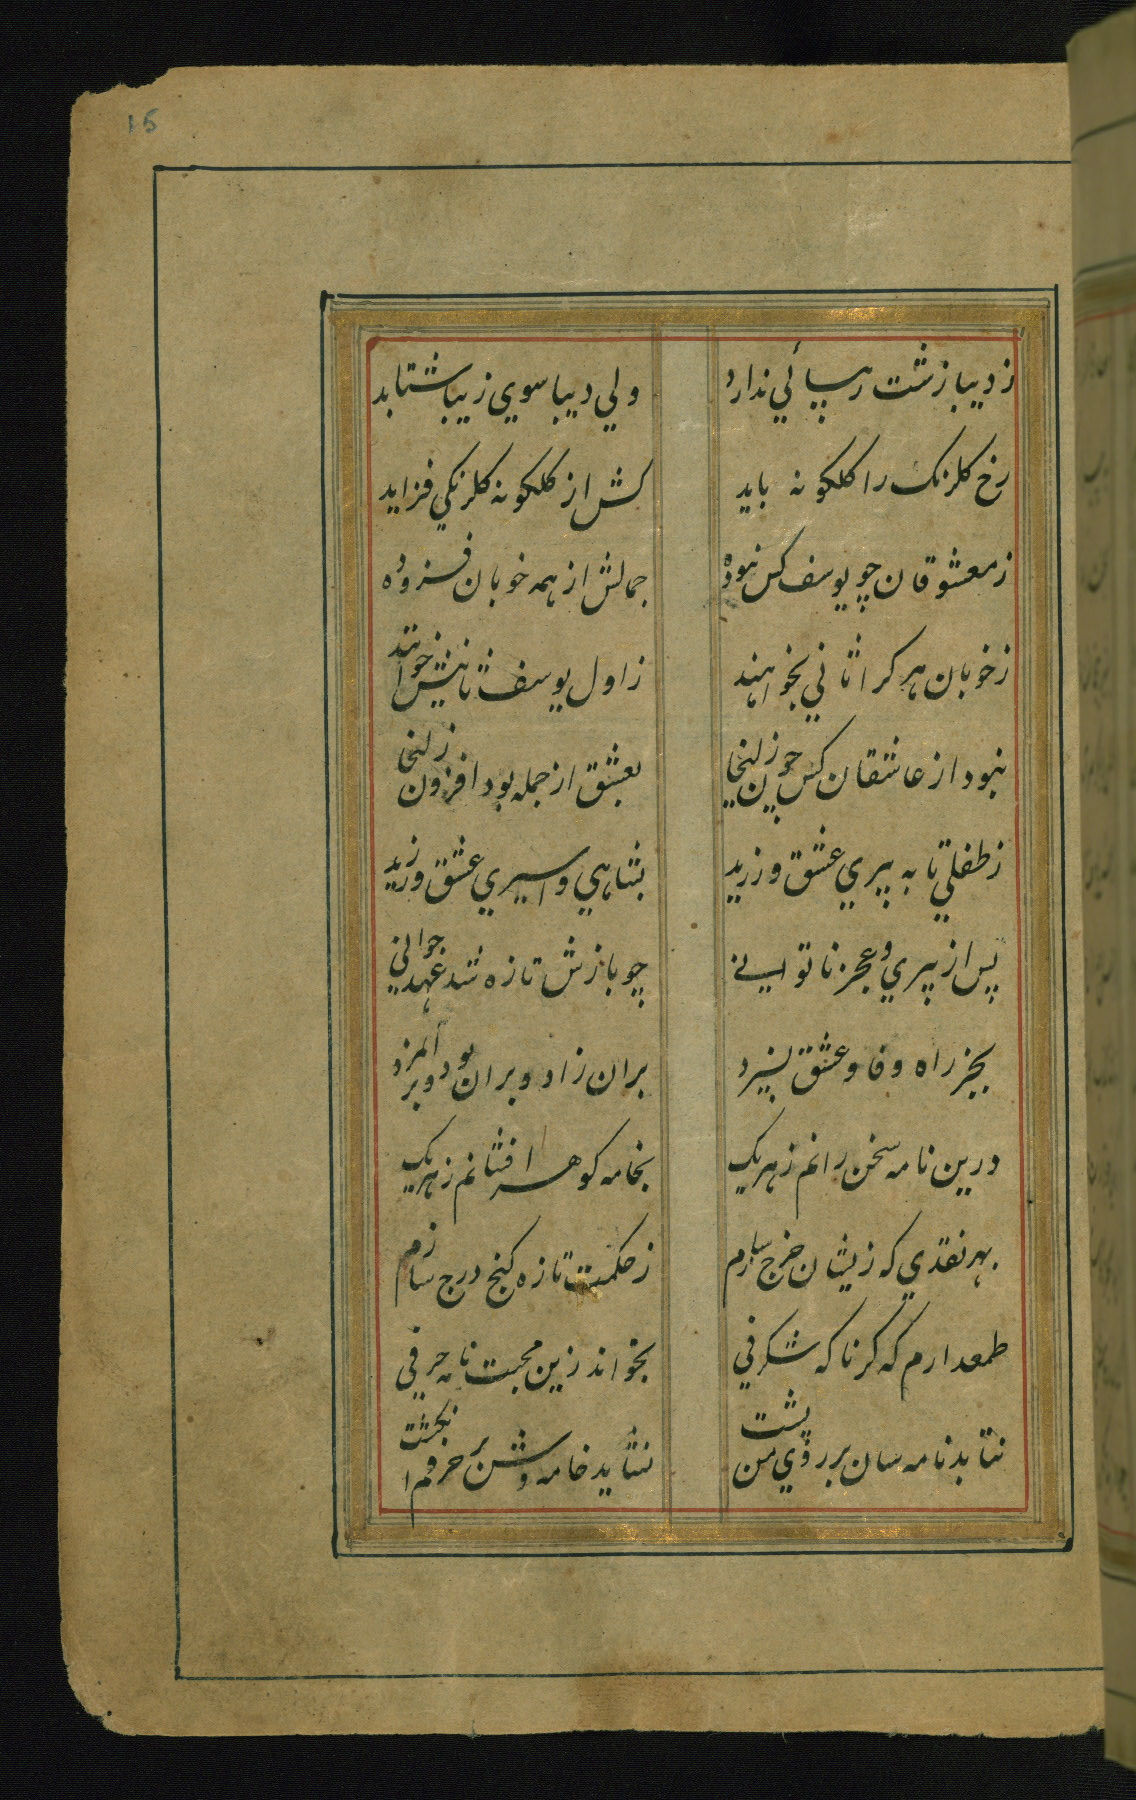 15
ز دیبا زشت زیبائي ندارد ولي دیبا سوي زیبا شتابد
رخ کلرنک را کلکونه باید کش از کلکونه کلرنکي فزاید
ز معشوقان چو یوسف کس نبوده جمالش از همه خوبان فزوده
ز خوبان هر کرا ثاني بخوانند ز اول یوسف ثانیش خوانند
نبود از عاشقان کس چون زلیخا بعشق از جمله بود افزون زلیخا
ز طفلي تا به پیري عشق ورزید بشاهي و اسیري عشق ورزید
پس از پیري و عجز ناتواني چو بازش تازه شد عهد جواني
بجز راه وفا و عشق نسپرد بران زاد و بران بود و بر آن مرد
درین نامه سخن رانم ز هر یک بخامه کوهر افشانم ز هر یک
بهر نقدي که زیشان خرج سازم ز حکمت تازه کنج درج سازم
طمع دارم که کر ناکه شکرفي بخواند زین محبت نامه حرفي
نتابد نامه سان بر روي من پشت نساید خامه وش بر حرفم انکشت